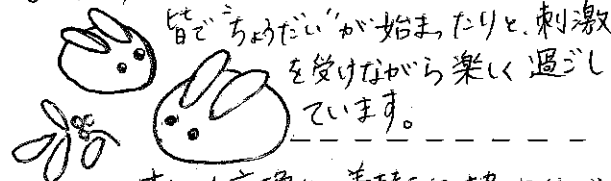 皆で"ちょうだい"が始まったりと、刺激
を受けながら楽しく過ごし
ています。